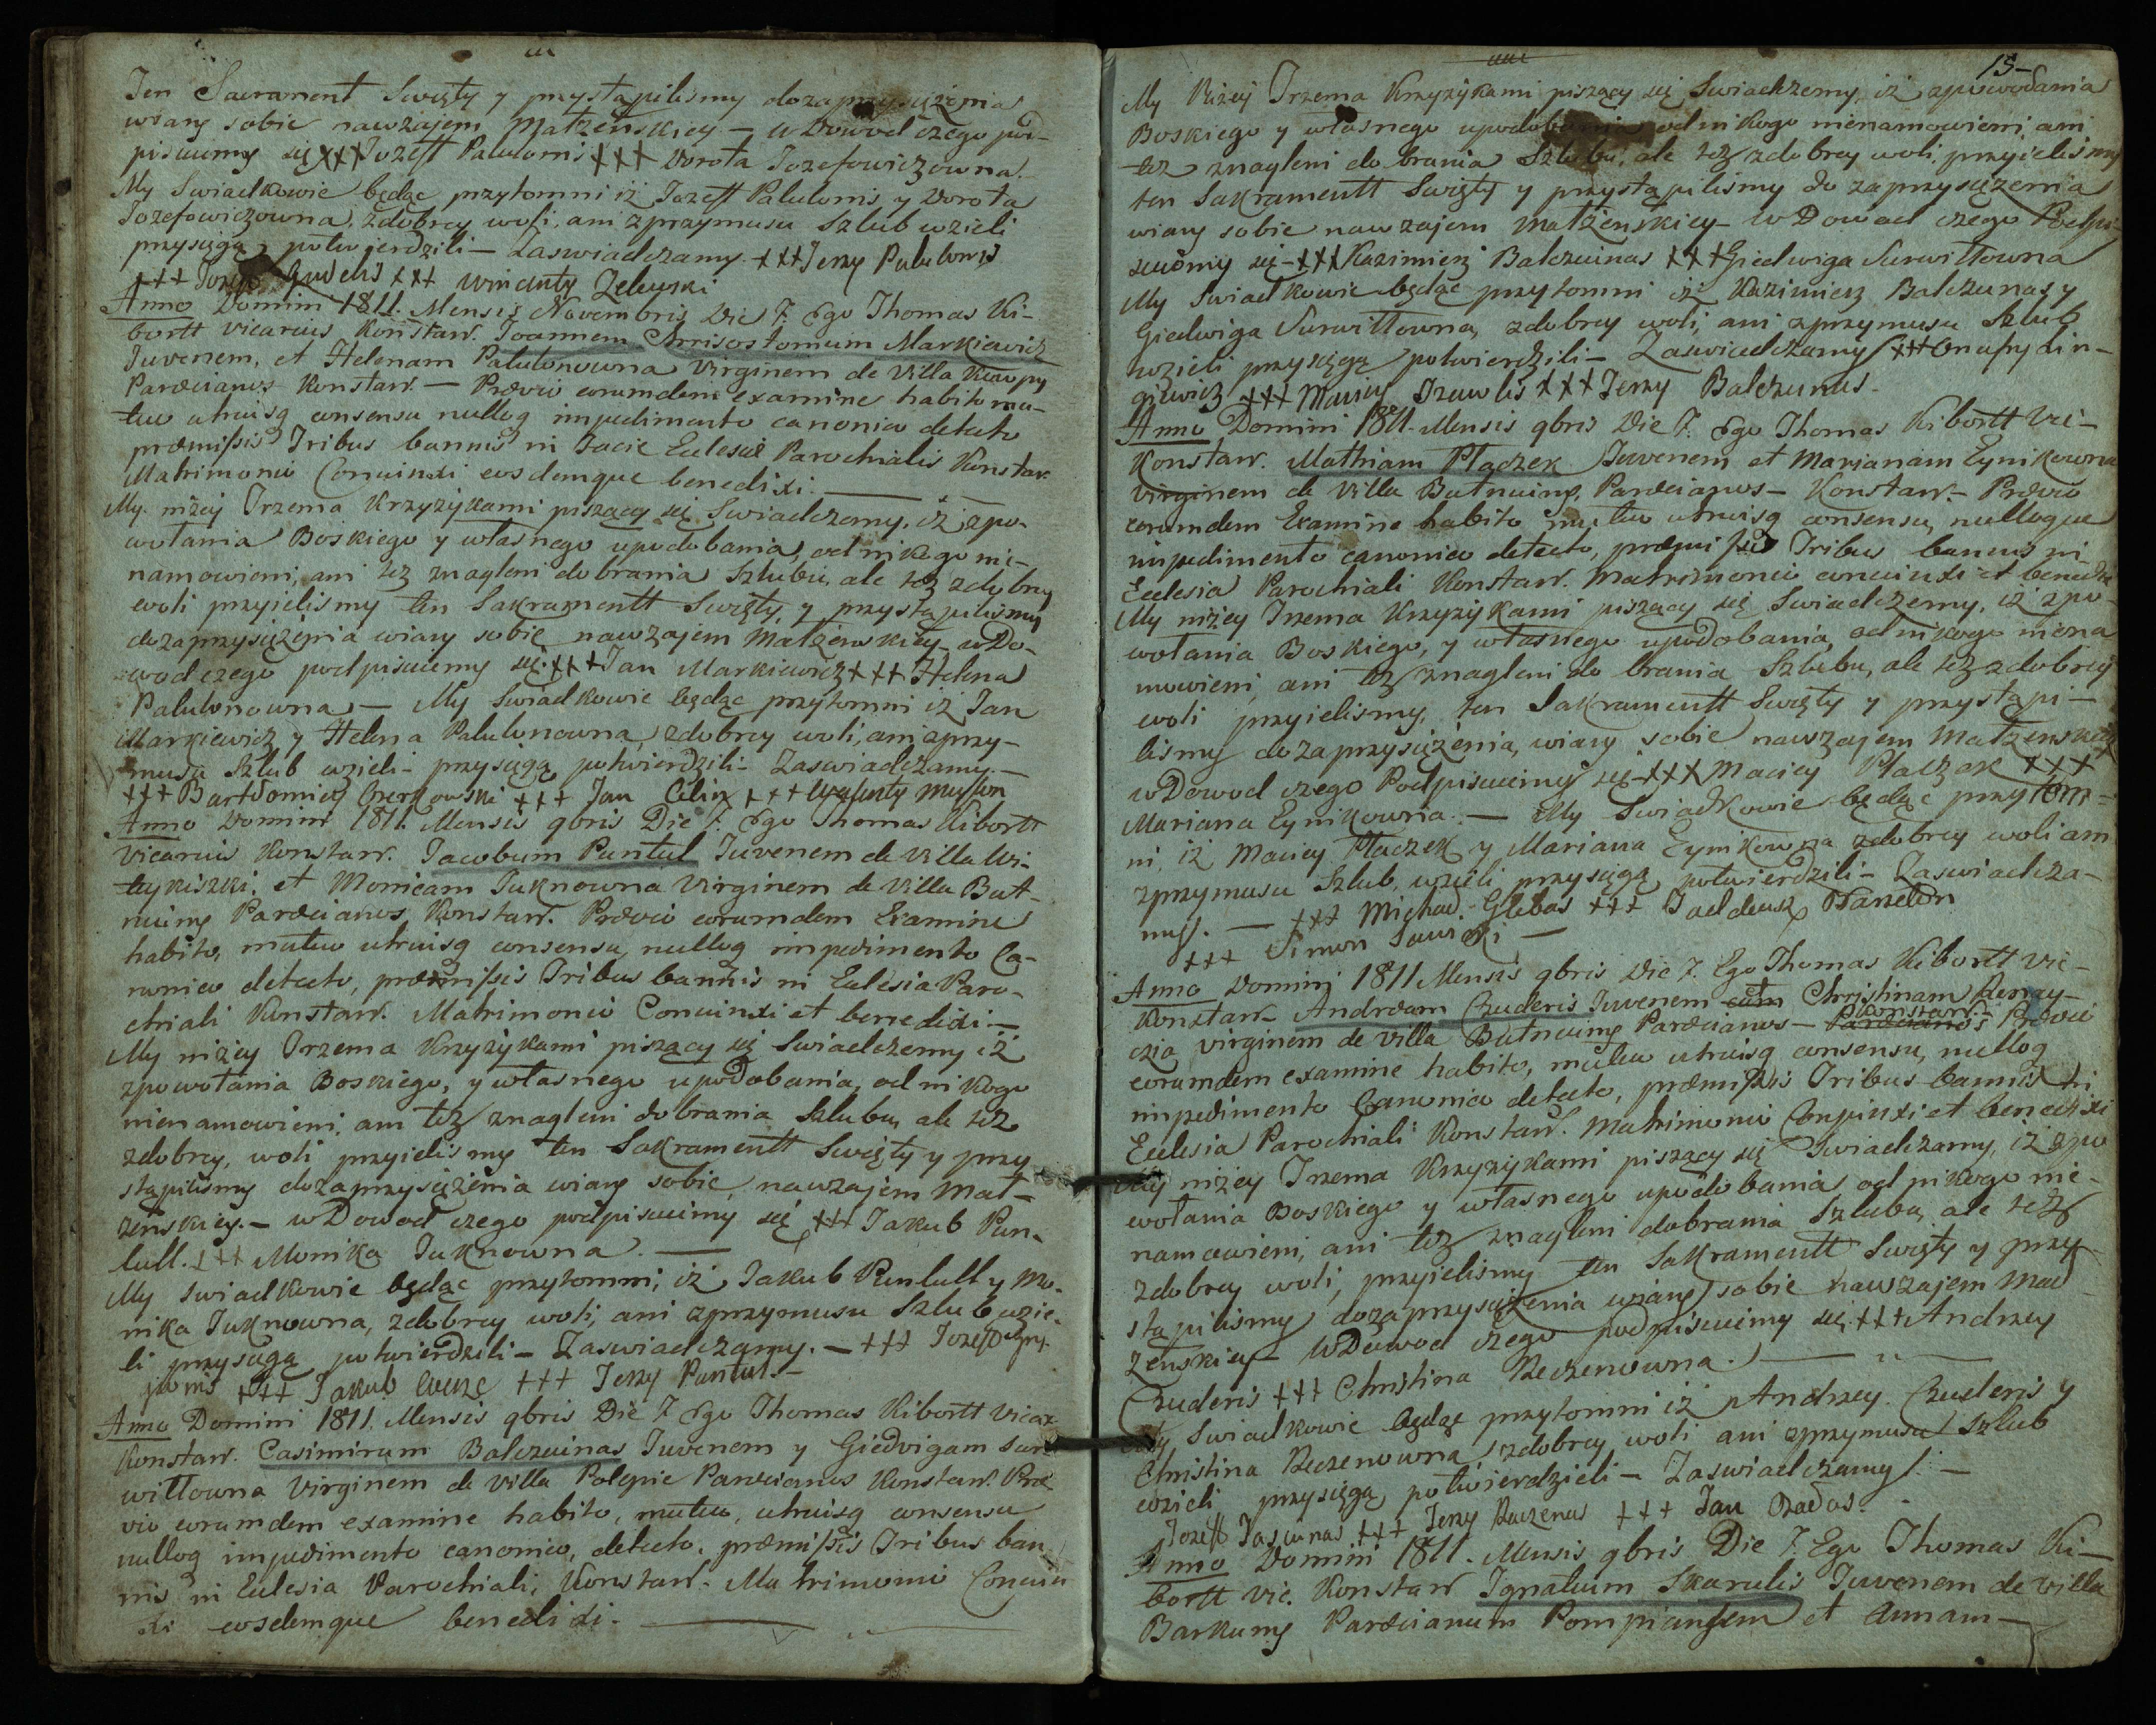 Ten Sacrament Swięty y przystąpilismy dozaprzysiężenia
wiary sobie nawzajem Małżenskiey — w Dowod czego pod-
pisuiemy się +++ Jozeff Palulonis +++ Dorota Jozefowiczowna.
My Swiadkowie będąc przytomni iż Jozeff Palulonis y Dorota
Jozefowiczowna, zdobrey woli, ani zprzymusu Szlub wzieli
przysięgą potwierdzili — Zaswiadczamy. +++ Jerzy Palulonis
+++ Jozef Gudelis +++ Wincenty Zelewski
Anno Domini 1811. Mensis Novembris Die 7. Ego Thomas Ki-
bortt Vicarius Konstan. Joannem Chrisostomum Markiewicz
Juvenem, et Helenam Palulonowna Virginem de Villa
Parœcianos Konstan. — Prævio eorumdem examine habito mu-
tuo utriusq consensu nulloq impedimento canonico detecto
præmissis Tribus bannis in Facie Eclesiæ Parochialis Konstan.
Matrimonio Coniunxi eosdemque benedixi. —
My niżey Trzema Krzyżykami piszący się Swiadczemy, iż zpo-
wołania Boskiego y własnego upodobania, od nikogo nie-
namowieni, ani też znagleni do brania Szlubu, ale też zdobrey
woli przyielismy ten Sakramentt Swięty, y przystąpilismy
dozaprzysiężenia wiary sobie nawzajem Małżenskiey — w Do-
wod czego podpisuiemy się. +++ Jan Markiewicz +++ Helena
Palulonowna — My Swiadkowie będąc przytomni iż Jan
Markiewicz y Helena Palulonowna, zdobrey woli, ani zprzy-
musu Szlub wzieli — przysięgą potwierdzili — Zaswiadczamy. —
+++ Bartłomiey +++ Jan +++
Anno Domini 1811. Mensis 9bris Die 7. Ego Thomas Kibortt
Vicarius Konstan. Jacobum Puntul Juvenem de Villa Wi-
tykiszki, et Monicam Juknowna Virginem de Villa But-
nuiny Parœcianos Konstan. Prævio eorumdem Examine
habito, mutuo utriusq consensu, nulloq impedimento Ca-
nonico detecto, præmissis Tribus bannis in Eclesia Paro-
chiali Konstan. Matrimonio Coniunxi et benedixi —
My niżey Trzema Krzyżykami piszący się Swiadczemy iż
zpowołania Boskiego, y własnego upodobania, od nikogo
nienamowieni, ani też znagleni do brania Szlubu, ale też
zdobrey, woli przyielismy ten Sakramentt Swięty y przy
stąpilismy dozaprzysiężenia wiary sobie, nawzajem Mał-
żenskiey. — w Dowod czego podpisuiemy się +++ Jakub Pun-
tull. +++ Monika Juknowna. —
My Swiadkowie będąc przytomni, iż Jakub Puntull y Mo-
nika Juknowna, zdobrey woli, ani zprzymusu Szlub wzie-
li przysięgą potwierdzili — Zaswiadczamy. — +++ Jozeff
+++ Jakub +++ Jerzy Puntul —
Anno Domini 1811. Mensis 9bris Die 7. Ego Thomas Kibortt Vicar
Konstan. Casimirum Balczuinas Juvenem y Giedvigam Sur
wiłłowna Virginem de Villa Polepie Parœcianos Konstan. Præ
vio eorumdem examine habito, mutuo, utriusq consensu
nulloq impedimento canonico, detecto, præmissis Tribus ban
nis in Eclesia Parochiali, Konstan. Matrimonio Coniun
xi eosdemque benedixi. —
15 —
My Niżey Trzema Krzyżykami piszący się Swiadczemy, iż zpowołania
Boskiego y własnego upodobania od nikogo nienamowieni, ani
też znagleni do brania Szlubu, ale też zdobrey woli, przyielismy
ten Sakramentt Swięty y przystąpilismy do zaprzysiężenia
wiary sobie nawzajem Małżenskiey — w Dowod czego Podpi-
suiemy się — +++ Kazimierz Balczuinas +++ Giedwiga Surwiłłowna
My Swiadkowie będąc przytomni iż Kazimierz Balczunas y
Giedwiga Surwiłłowna, zdobrey woli, ani zprzymusu Szlub
wzieli przysięgą potwierdzili — Zaswiadczamy +++ Onufry Lin-
giewicz +++ Maciey +++ Jerzy Balczunas —
Anno Domini 1811. Mensis 9bris Die 7. Ego Thomas Kibortt Vic —
Konstan. Mathiam Płaczek Juvenem et Marianam Eynikowna
Virginem de Villa Butnuiny, Parœcianos — Konstan. — Prævio
eorumdem Examine habito mutuo utriusq consensu, nulloque
impedimento canonico detecto, præmissis Tribus bannis in
Eclesia Parochiali Konstan. Matrimonio coniunxi et benedixi
My niżey Trzema Krzyżykami piszący się Swiadczemy, iż zpo-
wołania Boskiego, y własnego upodobania, od nikogo niena
mowieni, ani też znagleni do brania Szlubu, ale też zdobrey
woli przyielismy, ten Sakramentt Swięty y przystąpi —
lismy dozaprzysiężenia, wiary sobie nawzajem Małżenskiey
w Dowod czego Podpisuiemy się — +++ Maciey Płaczek +++
Mariana Eynikowna. — My Swiadkowie będąc przytom =
ni, iż Maciey Płaczek y Mariana Eynikowna zdobrey woli ani
zprzymusu Szlub, wzieli przysięgą potwierdzili — Zaswiadcza-
my. — +++ Michał Glebas +++ Taddeusz
+++ Simon —
Anno Domini 1811 Mensis 9bris Die 7. Ego Thomas Kibortt Vic —
Konstan — Andream Czuderis Juvenem cum Christinam
virginem de Villa Butnuiny Parœcianos — Parœcianos Konstan. — Prævio
eorumdem examine habito, mutuo utriusq consensu, nulloq
impedimento Canonico detecto, præmissis Tribus bannis in
Eclesia Parochiali Konstan. Matrimonio Conjunxi et benedixi
My niżey Trzema Krzyżykami piszący się Swiadczamy, iż zpo
wołania Boskiego y własnego upodobania od nikogo nie-
namowieni, ani też znagleni do brania Szlubu, ale też
zdobrey woli, przyielismy ten Sakramentt Swięty y przy
stąpilismy dozaprzysiężenia wiary sobie nawzajem Mał
żenskiey — w Dowod czego podpisuiemy się +++ Andrzey
Czuderis +++ Christina Reczenowna. —
My Swiadkowie będąc przytomni iż Andrzey Czuderis y
Christina Reczenowna, zdobrey woli ani zprzymusu Szlub
wzieli przysięgą, potwierdzieli — Zaswiadczamy. —
Jozeff Jasiunas +++ Jerzy Reczenas +++ Jan
Anno Domini 1811. Mensis 9bris Die 7. Ego Thomas Ki —
bortt Vic. Konstan Ignatium Skarulis Juvenem de Villa
Barkuny Parœcianum Pompiansem et Annam —